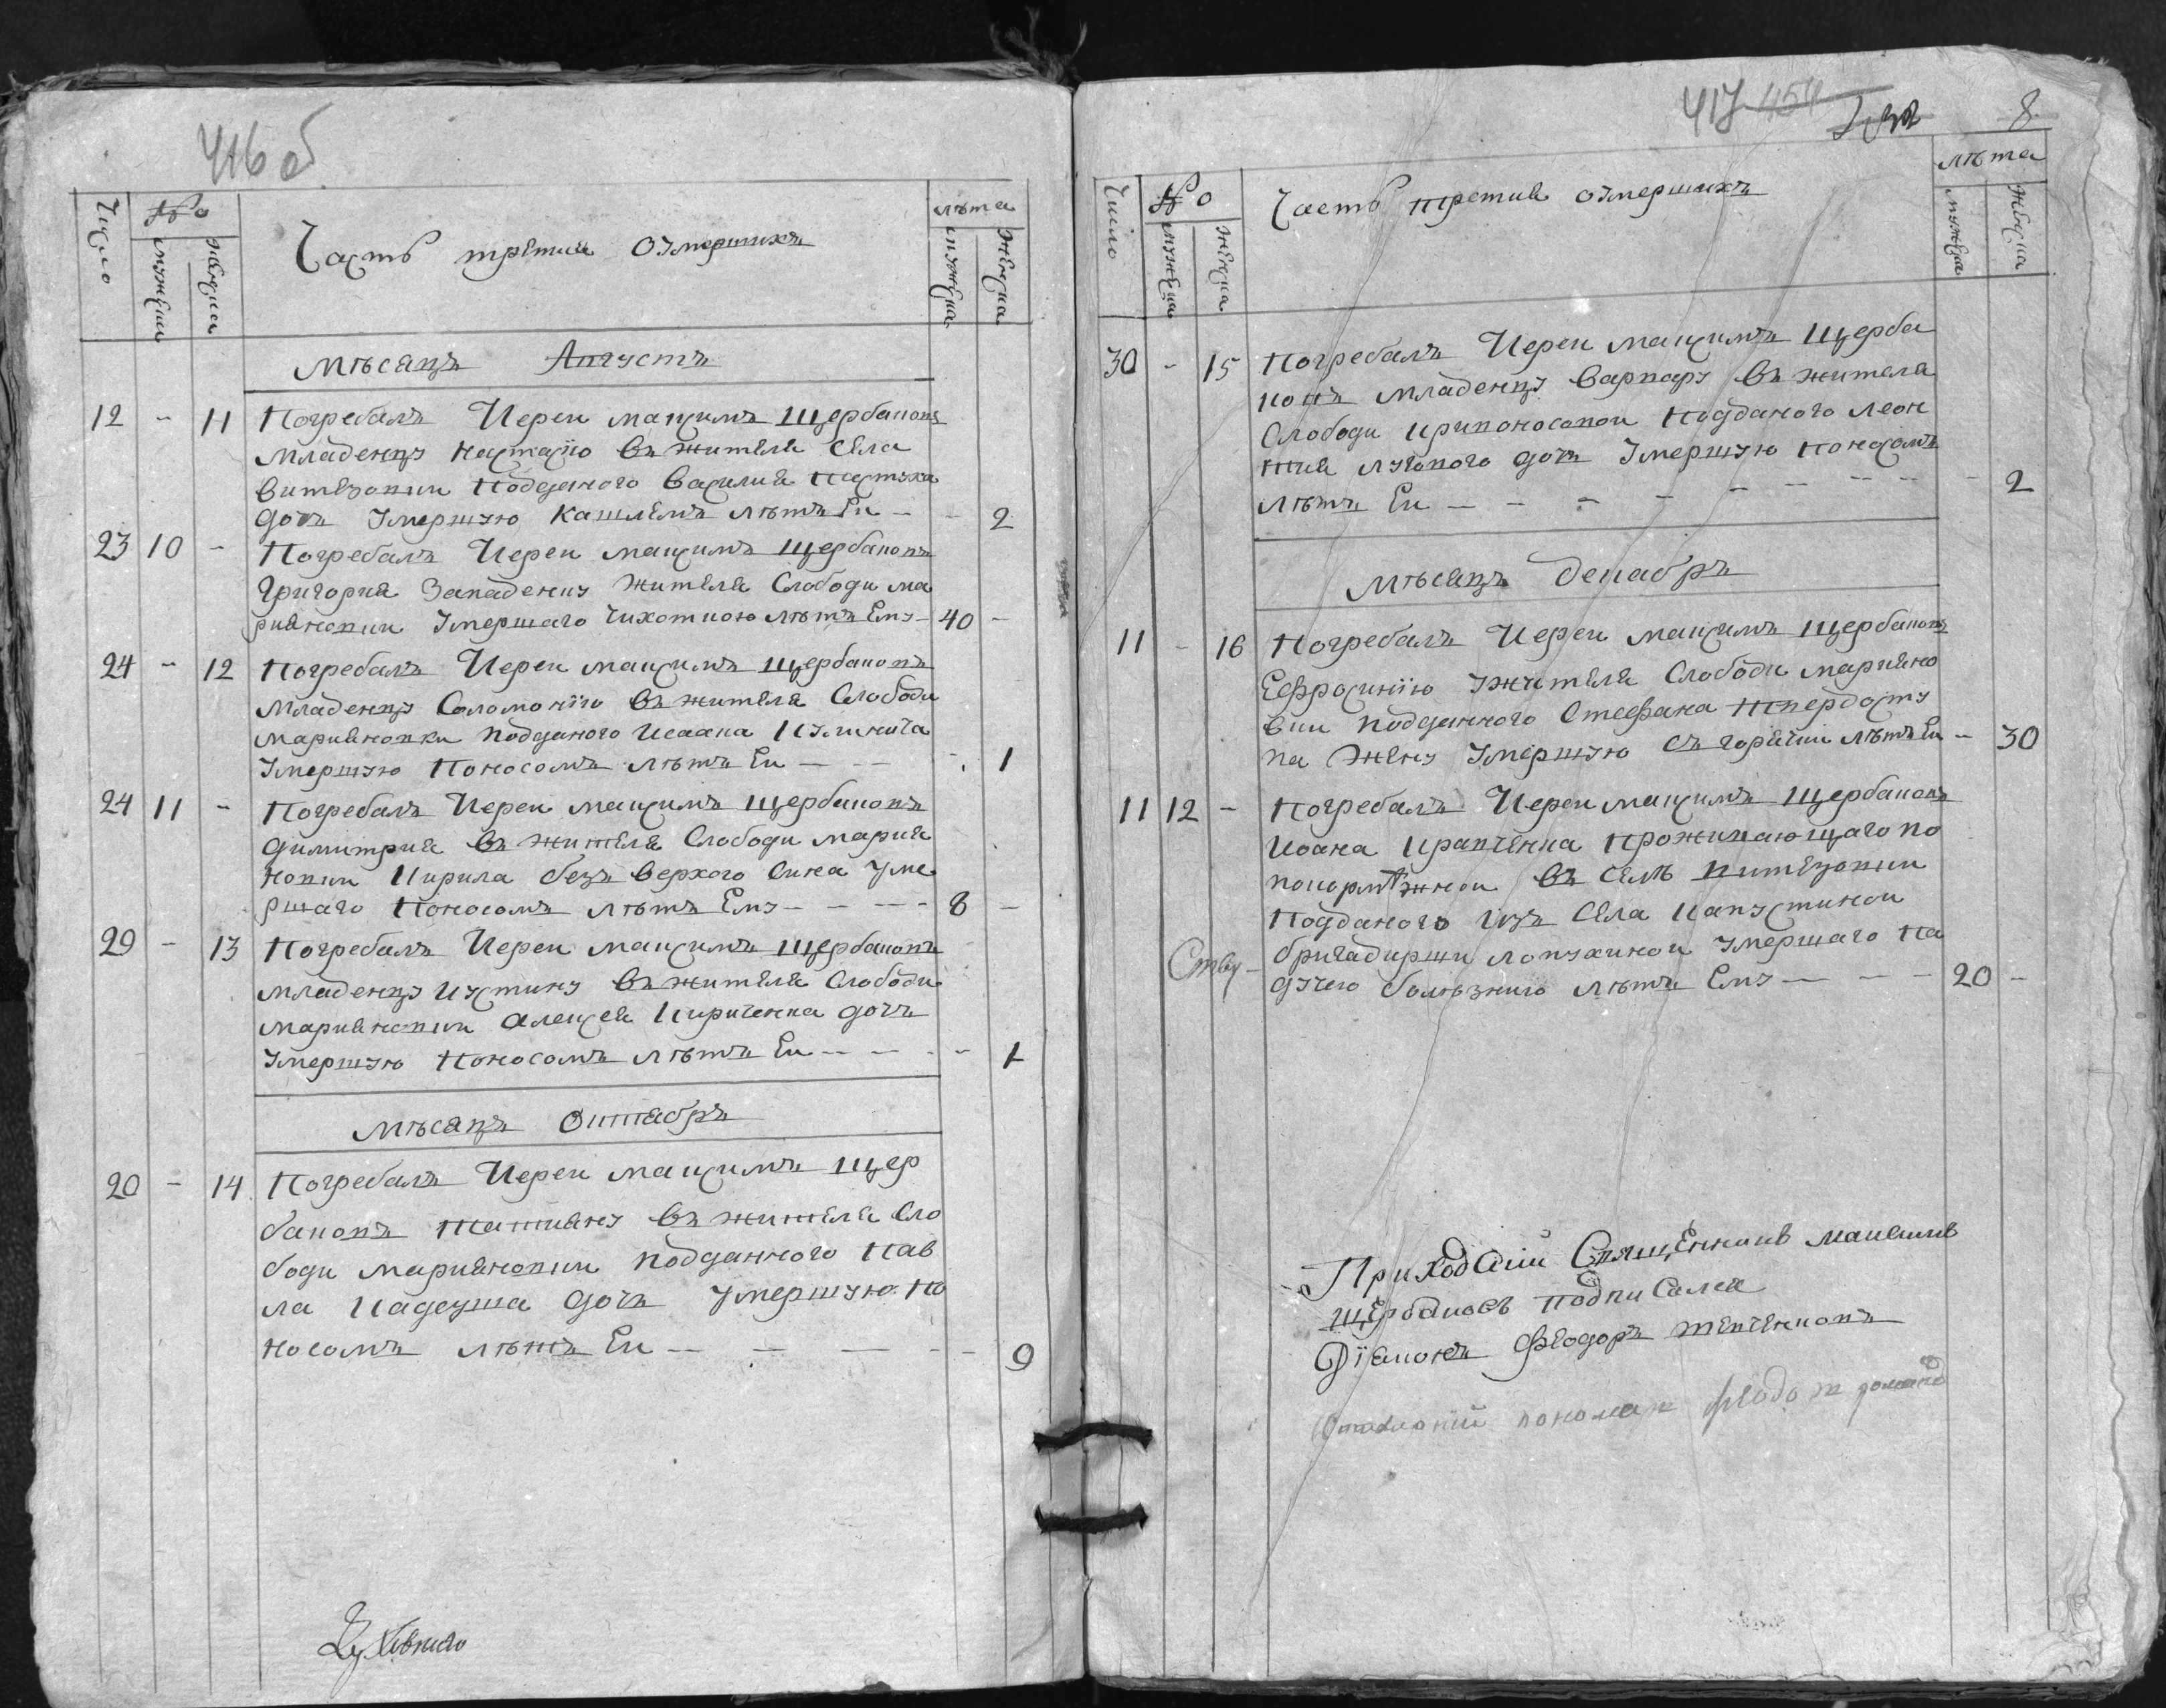 416 об
Число
№
мужеска
женска
Часть третия оумершихъ
лѣта
мужеска
женска
Мѣсяцъ Августъ
12 - 11 Погребалъ Иереи Максимъ Щербаковъ
младенцу Настасїю въ жителя села
Витязовки подданого Василия Пастуха
дочь умершую кашлемъ лѣтъ Еи - - 2
23 10 - Погребалъ Иереи Максимъ Щербаковъ
Григория жителя Слободи Ма
рияновки умершаго чихоткою лѣтъ Ему - 40 -
24 - 12 Погребалъ Иереи Максимъ Щербаковъ
младенцу Соломонїю въ жителя Слободи
Марияновки подданого Исаака
умершую поносомъ лѣтъ Еи - - - 1
24 11 - Погребалъ Иереи Максимъ Щербаковъ
Димитрия въ жителя Слободи Мария
новки Кирила безъ верхого сина уме
ршаго поносомъ лѣтъ Ему - - - - 8 -
29 - 13 Погребалъ Иереи Максимъ Щербаковъ
младенцу Иустину въ жителя Слободи
Марияновки Алексея Кириченка дочь
умершую поносомъ лѣтъ Еи - - - - 1
Мѣсяцъ Октябръ
20 - 14 Погребалъ Иереи Максимъ Щер
баковъ Татияну въ жителя Сло
боди Марияновки подданного Пав
ла Кадеуша дочь умершую по
носомъ лѣтъ Еи - - - - - 9
417 454
8
Число
№
мужеска
женска
Часть третия оумершихъ
лѣта
мужеска
женска
30 - 15 Погребалъ Иереи Максимъ Щерба
ковъ младенцу Варвару въ жителя
Слободи Кривоносовои подданого Леон
тия дочь умершую поносомъ
лѣтъ Еи - - - - - - - - - 2
Мѣсяцъ Декабръ
11 - 16 Погребалъ Иереи Максимъ Щербаковъ
Ефросинїю ужителя Слободи Марияно
вки подданного Стефана Твердосту
па жену умершую съ горячки лѣтъ Еи - 30
11 12 - Погребалъ Иереи Максимъ Щербаковъ
Иоана Кравченка проживающаго по
покормѣжнои въ селѣ Витязовки
подданого изъ села Капустинои
бригадирши Лопухинои умершаго па
дучею болѣзнию лѣтъ Ему - - - - 20 -
Приходский Священникъ Максимъ
Щербаковъ подписался
Дїаконъ Феодоръ Шевченковъ
пономаръ